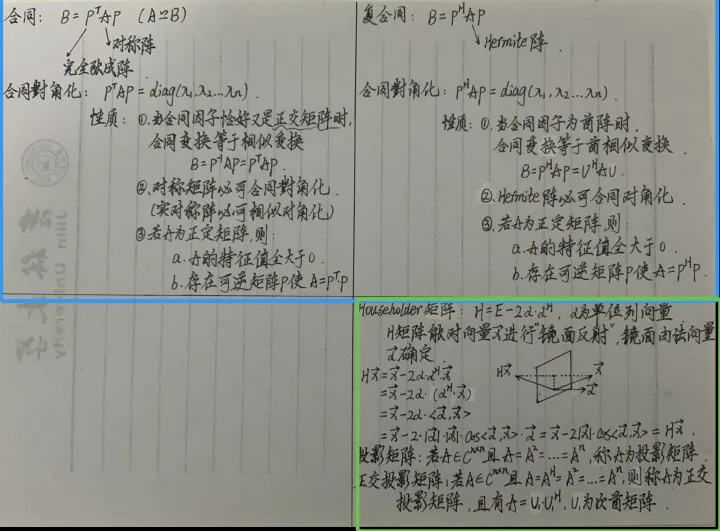 合同: B = PᵀAP (A≃B)
对称阵
完全합成阵.
合同對角化: PᵀAP = diag(λ₁, λ₂...λn).
性质: ①.当合同因子恰好又是正交矩阵时,
合同变换等于相似变换
B=P⁻¹AP=PᵀAP.
②.对称矩阵必可合同對角化.
(实对称阵必可相似对角化)
③若A为正定矩阵,则:
a. A的特征值全大于0.
b. 存在可逆矩阵P使 A=PᵀP
复合同: B=PᴴAP
Hermite阵.
合同对角化: PᴴAP = diag(λ₁, λ₂...λn).
性质: ①.当合同因子为酉阵时,
合同变换等于酉相似变换.
B=PᴴAP=UᴴAU.
②.Hermite阵必可合同对角化.
③.若A为正定矩阵,则:
a. A的特征值全大于0.
b. 存在可逆矩阵P使A=PᴴP.
Jilin University
Householder矩阵: H=E-2αα^H, α为单位列向量
H矩阵能对向量x⃗进行"镜面反射",镜面由法向量
α⃗确定.
Hx⃗ = x⃗-2α·αᴴ·x⃗
Hx⃗ x⃗
α⃗
= x⃗-2α·(αᴴ·x⃗)
= x⃗-2α·<α⃗,x⃗>
= x⃗-2·|α⃗|·|x⃗|·cos<α⃗,x⃗>·α⃗ = x⃗-2|x⃗|·cos<α⃗,x⃗> = Hx⃗.
投影矩阵: 若A∈Cⁿˣⁿ且A=A²=...=Aⁿ, 称A为投影矩阵.
正交投影矩阵: 若A∈Cⁿˣⁿ且A=Aᴴ=A²=...=Aⁿ, 则称A为正交
投影矩阵, 且有A=U₁U₁ᴴ, U₁为次酉矩阵.